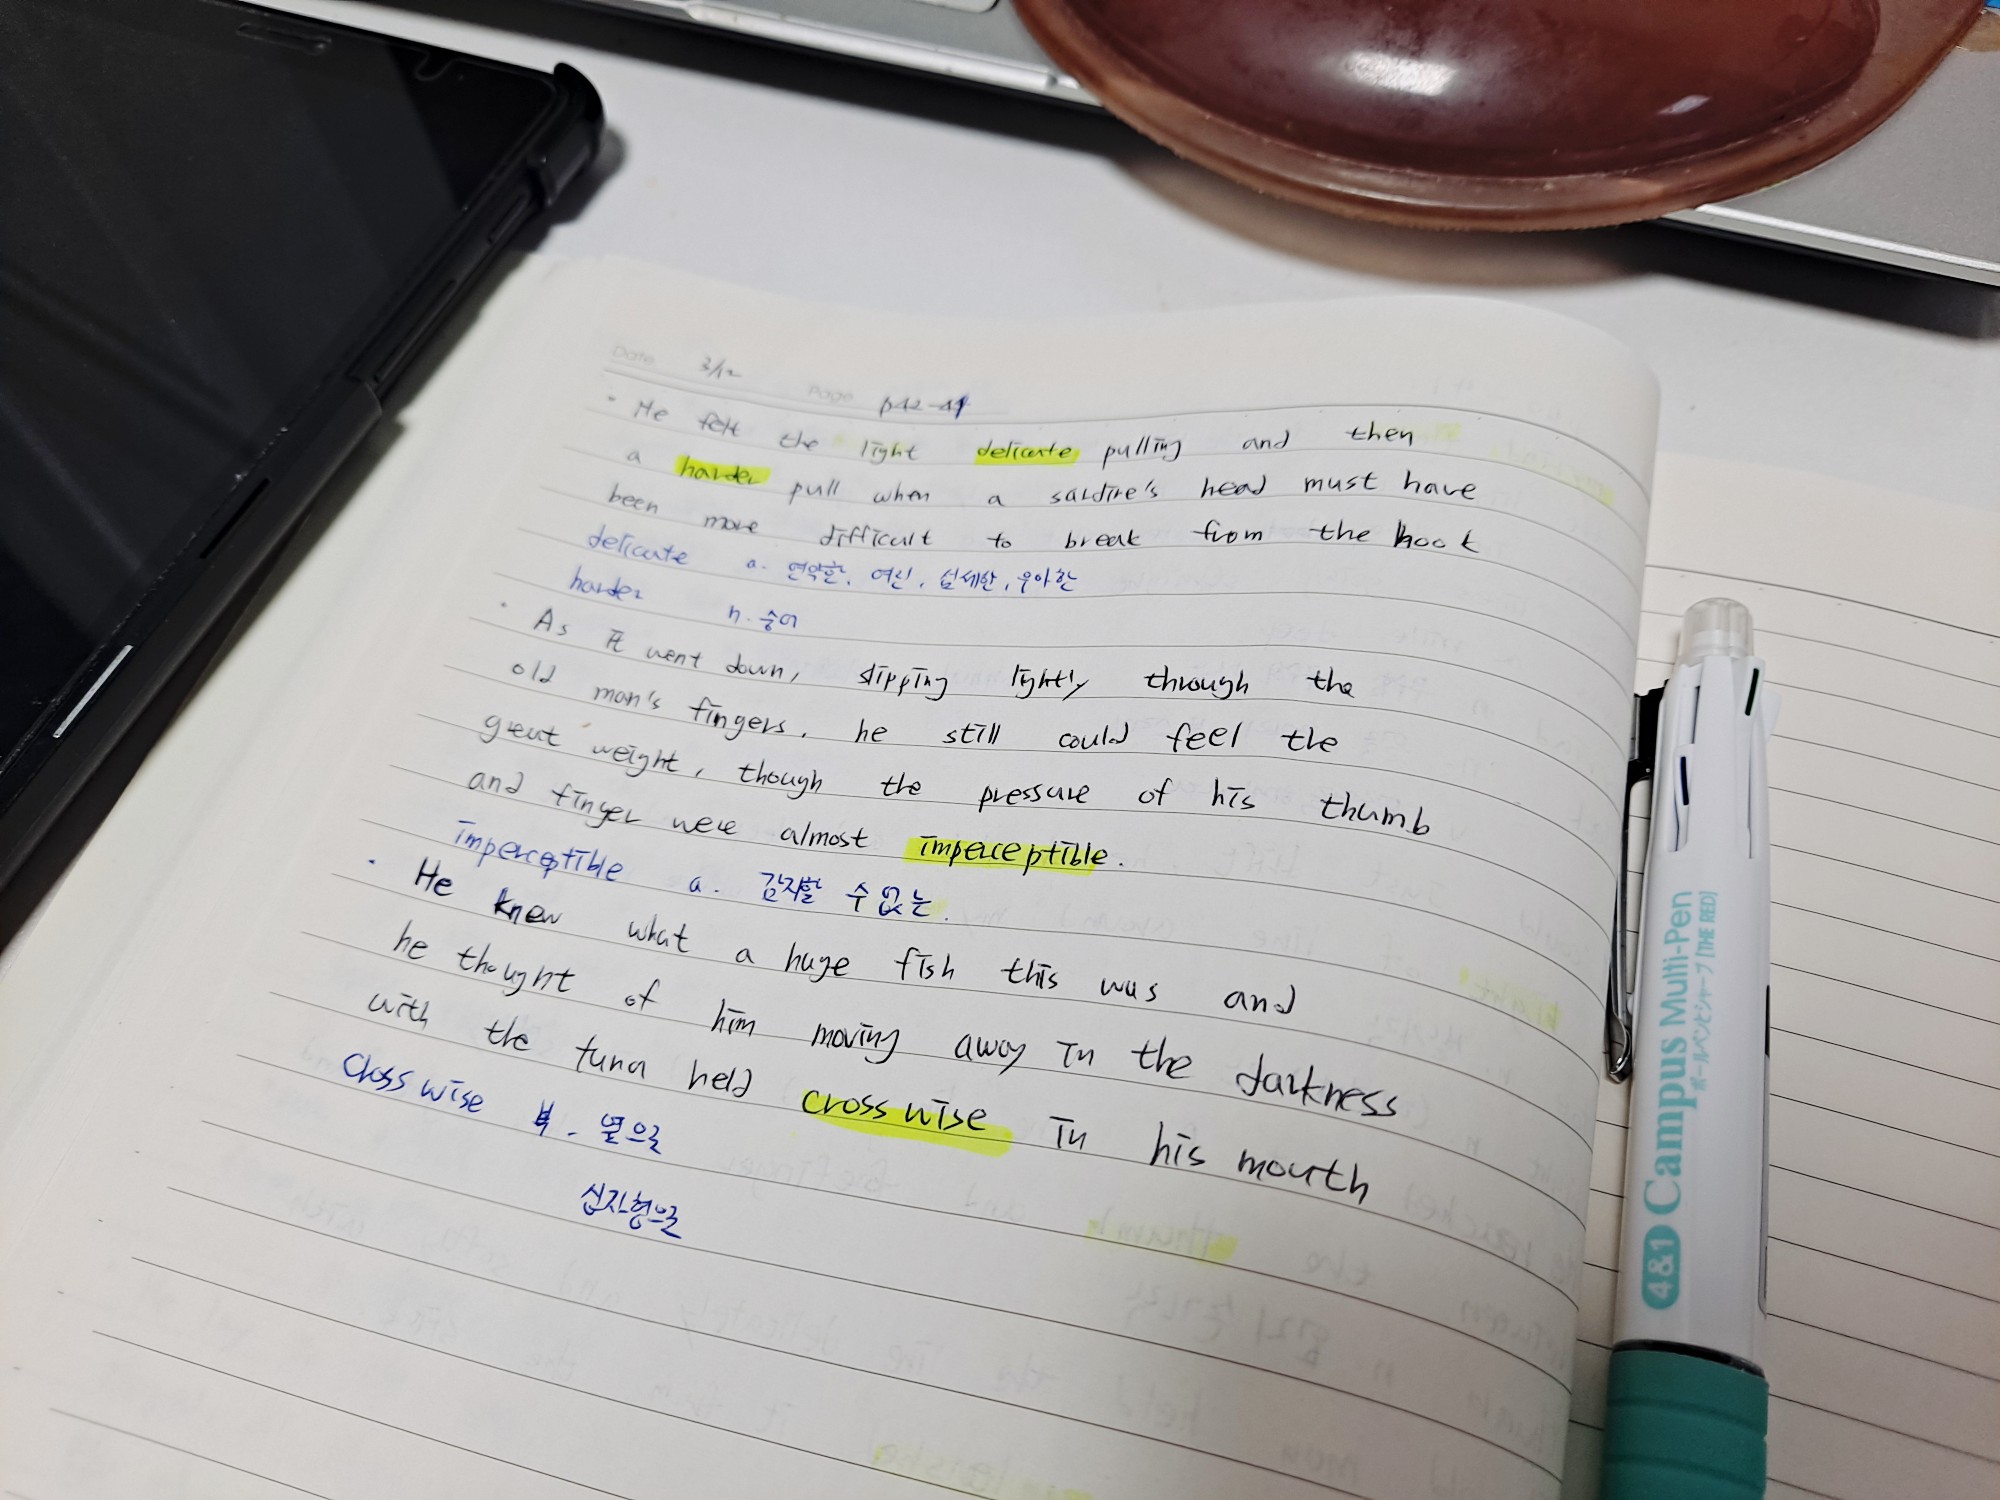 Date 3/12 Page p42-44
· He felt the light delicate pulling and then
a harder pull when a sardine's head must have
been more difficult to break from the hook
delicate a. 연약한, 여신, 섬세한, 우아한
harder n. 숭어
· As it went down, slipping lightly through the
old man's fingers, he still could feel the
great weight, though the pressure of his thumb
and finger were almost imperceptible.
imperceptible a. 감지할 수 없는.
· He knew what a huge fish this was and
he thought of him moving away in the darkness
with the tuna held crosswise in his mouth
Crosswise 부. 옆으로
십자형으로
4&1 Campus Multi-Pen
ボールペン&シャープ [THE RED]